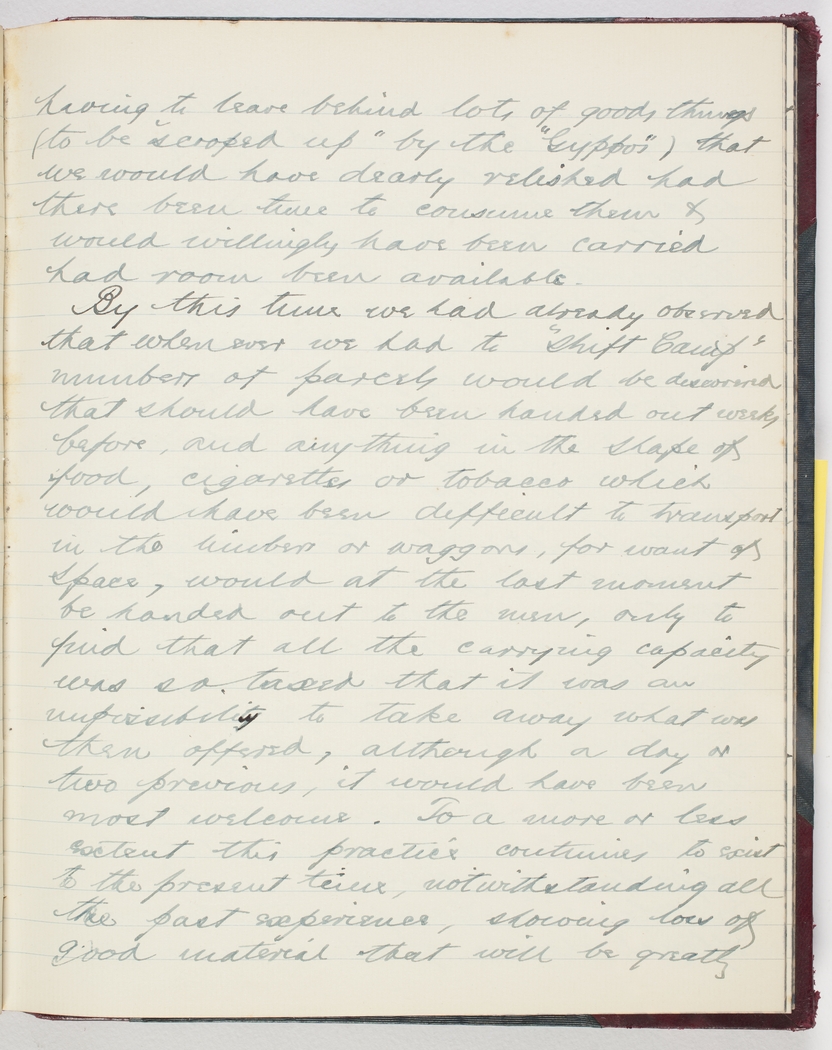 having to leave behind lots of goods things
(to be "scroped up" by the "Gyppos") that
we would have dearly relished had
there been time to consume them &
would willingly have been carried
had room been available.
By this time we had already observed
that when ever we had to "Shift Camp"
numbers of parcels would be discovered
that should have been handed out weeks
before, and anything in the shape of
food, cigarettes or tobacco which
would have been difficult to transport
in the limbers or waggons, for want of
space, would at the last moment
be handed out to the men, only to
find that all the carrying capacity
was so taxed that it was an
impossibility to take away what was
then offered, although a day or
two previous, it would have been
most welcome. To a more or less
extent this practice continues to exist
to the present time, notwithstanding all
the past experience, showing loss of
good material that will be greatly